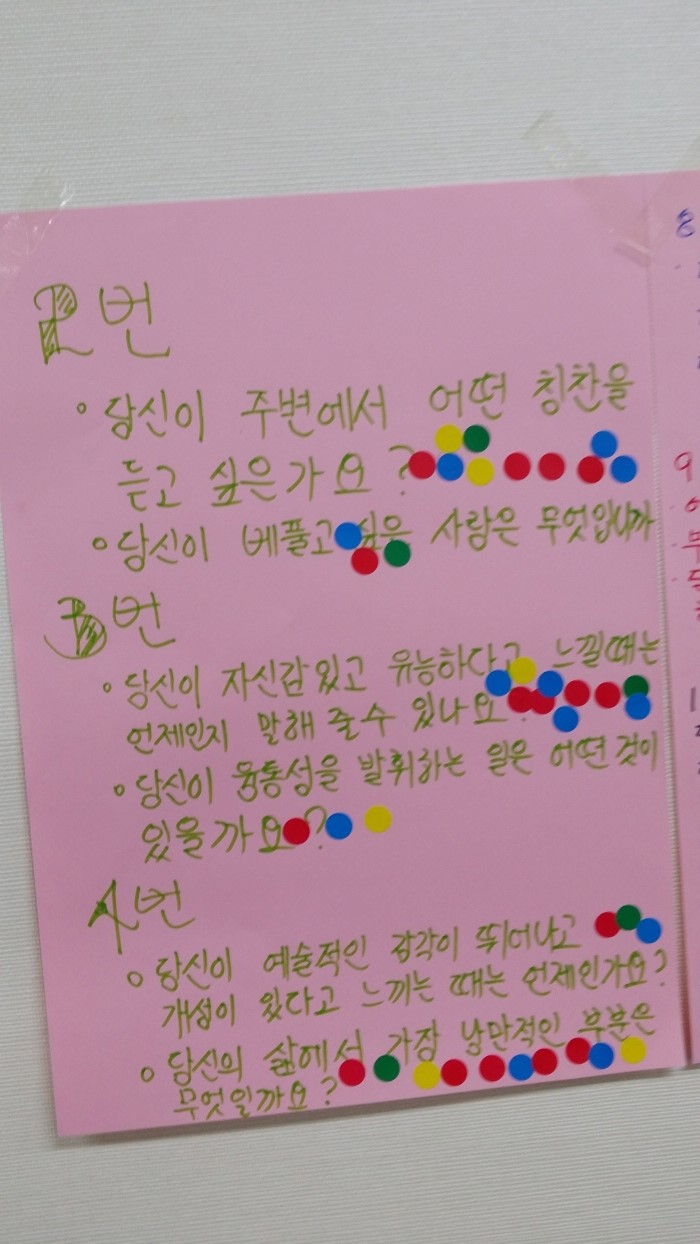 2번
◦ 당신이 주변에서 어떤 칭찬을
듣고 싶은가요?
◦ 당신이 베풀고 싶은 사랑은 무엇입니까
3번
◦ 당신이 자신감있고 유능하다고 느낄때는
언제인지 말해 줄수 있나요?
◦ 당신이 융통성을 발휘하는 일은 어떤것이
있을까요?
4번
◦ 당신이 예술적인 감각이 뛰어나고
개성이 있다고 느끼는 때는 언제인가요?
◦ 당신의 삶에서 가장 낭만적인 부분은
무엇일까요?
8
9